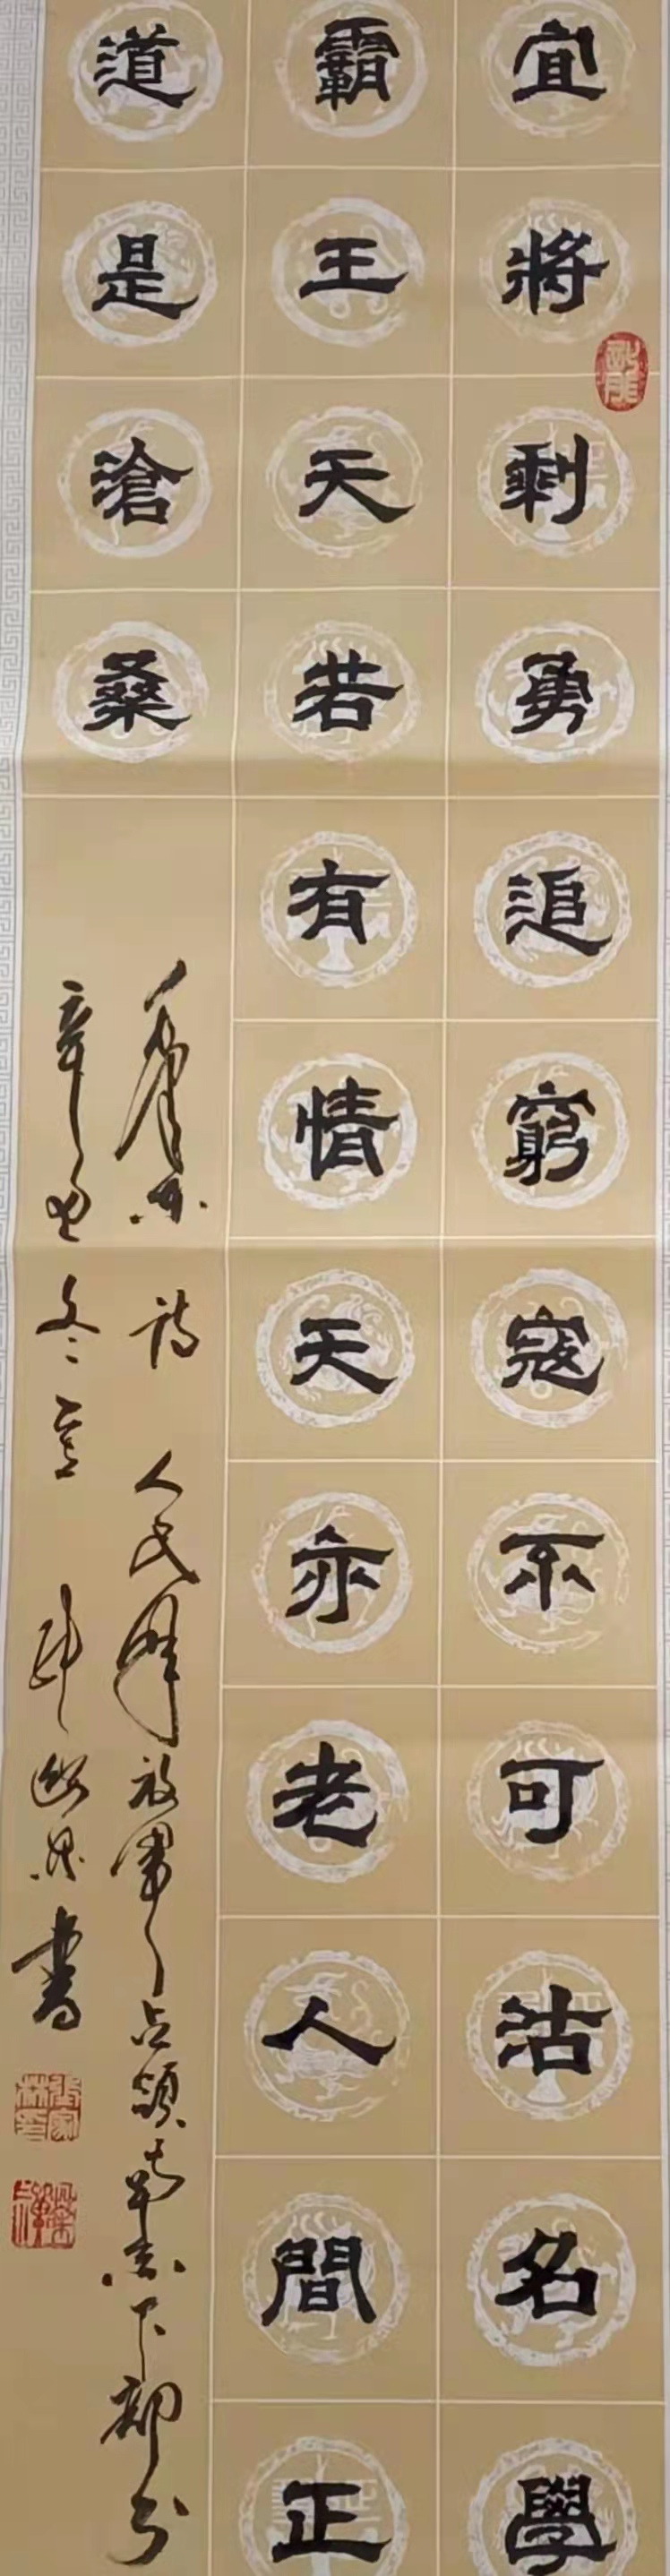 宜將剩勇追窮寇不可沽名學
霸王天若有情天亦老人間正
道是滄桑
毛澤東詩 人民解放軍占領南京下部分
辛丑冬月 書